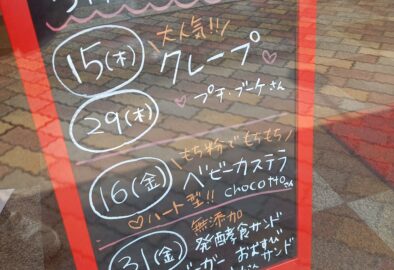 15(木) 大人気!!
クレープ
29(木) プチ・ブーケさん
もち粉でもちもち
16(金) ベビーカステラ
ハート型!! chocottoさん
無添加
31(金) 発酵食サンド
バーガー おむすび
サンド